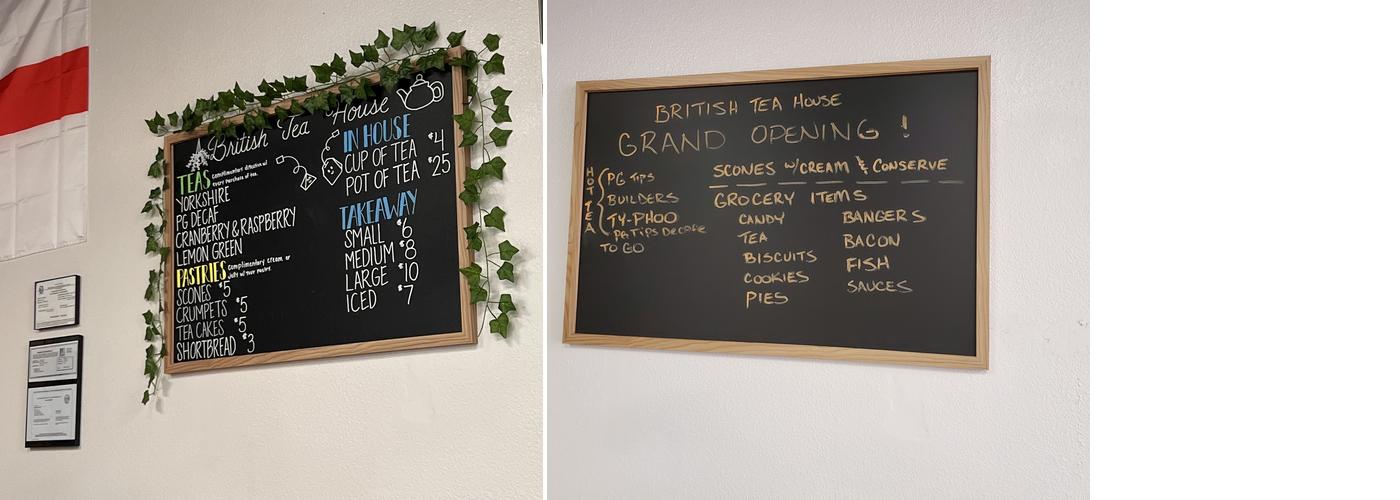 British Tea House
TEAS complimentary digestive w/
every purchase of tea.
YORKSHIRE
PG DECAF
CRANBERRY & RASPBERRY
LEMON GREEN
PASTRIES Complimentary cream or
jelly w/ your pastry.
SCONES $5
CRUMPETS $5
TEA CAKES $5
SHORTBREAD $3
IN HOUSE
CUP OF TEA $4
POT OF TEA $25
TAKEAWAY
SMALL $6
MEDIUM $8
LARGE $10
ICED $7
BRITISH TEA HOUSE
GRAND OPENING !
HOT TEA
PG TIPS
BUILDERS
TY-PHOO
PG TIPS DECAFE
TO GO
SCONES w/CREAM & CONSERVE
GROCERY ITEMS
CANDY
TEA
BISCUITS
COOKIES
PIES
BANGERS
BACON
FISH
SAUCES